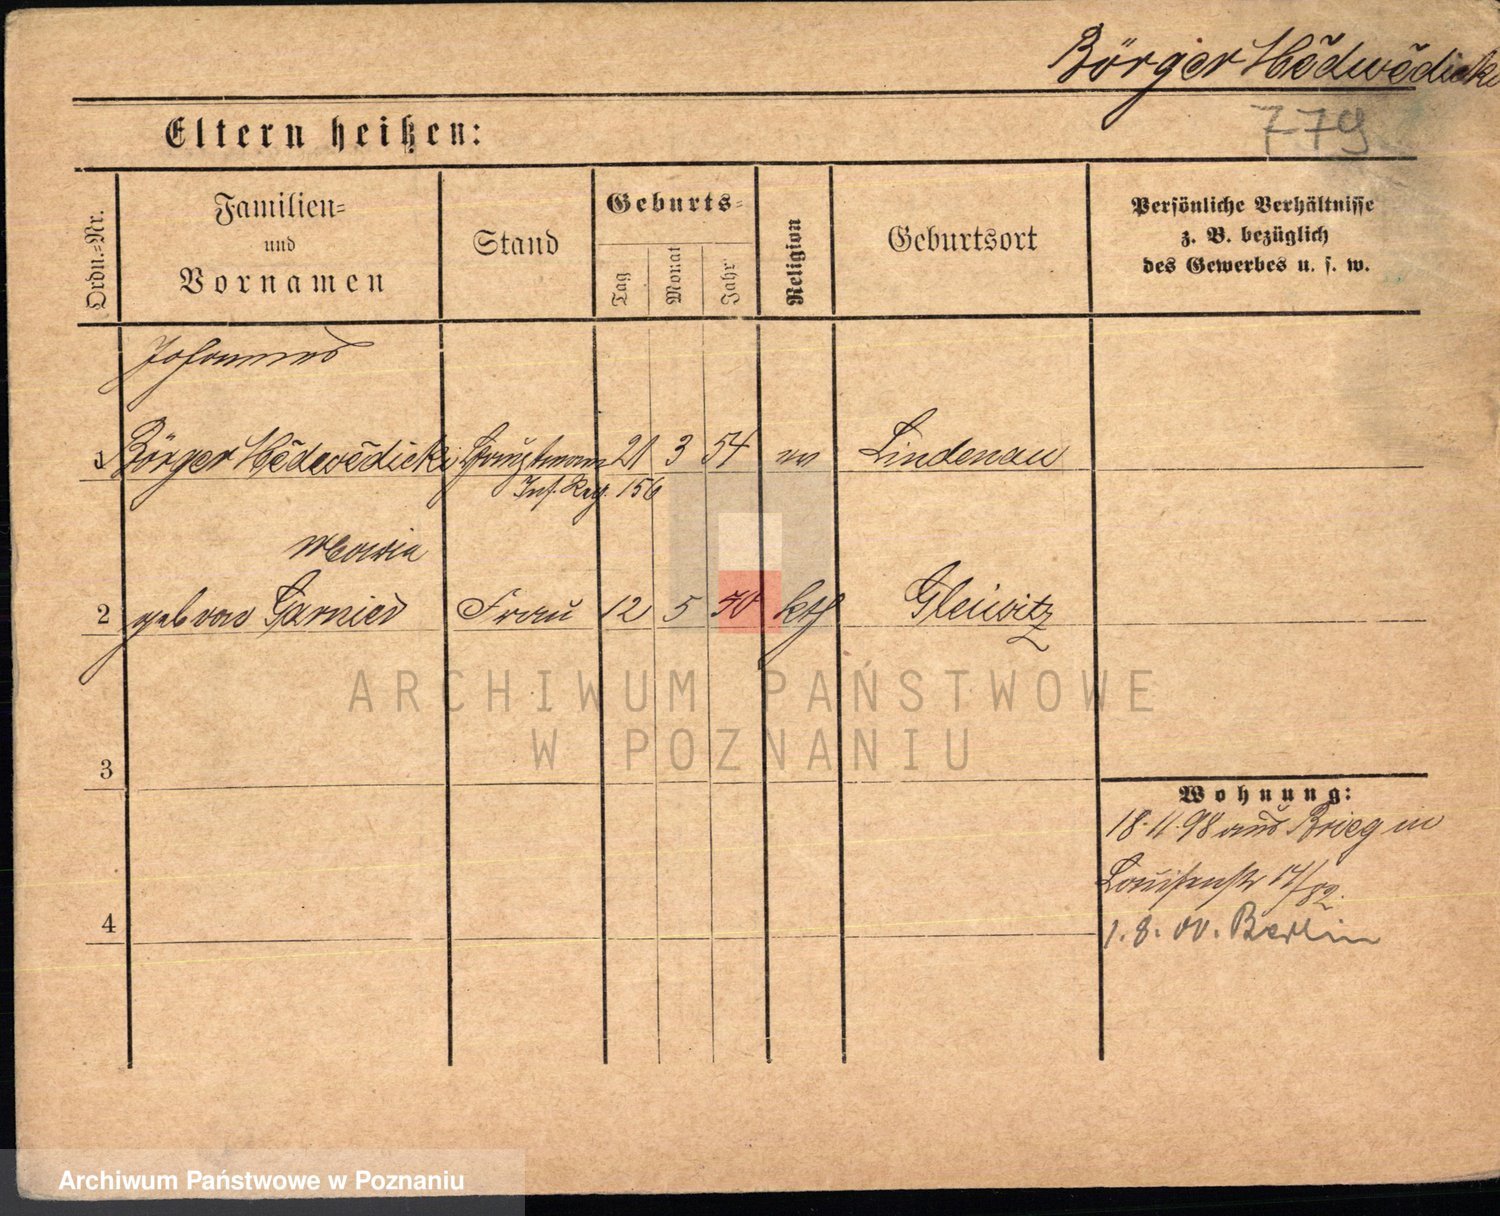 Börger
779
Eltern heißen:
Ordn.-Nr.
Familien-
und
Vornamen
Stand
Geburts-
Tag
Monat
Jahr
Religion
Geburtsort
Persönliche Verhältnisse
z. B. bezüglich
des Gewerbes u. s. w.
Johannes
1 Börger Hauptmann 21 3 54 ev Lindenau
Inf. Reg. 156
Maria
2 geb von Garnier Frau 12 5 70 kth Gleiwitz
ARCHIWUM PAŃSTWOWE
W POZNANIU
3
Wohnung:
18. 11. 98 aus Brieg in
Louisenstr
4
1. 8. 00. Berlin
Archiwum Państwowe w Poznaniu